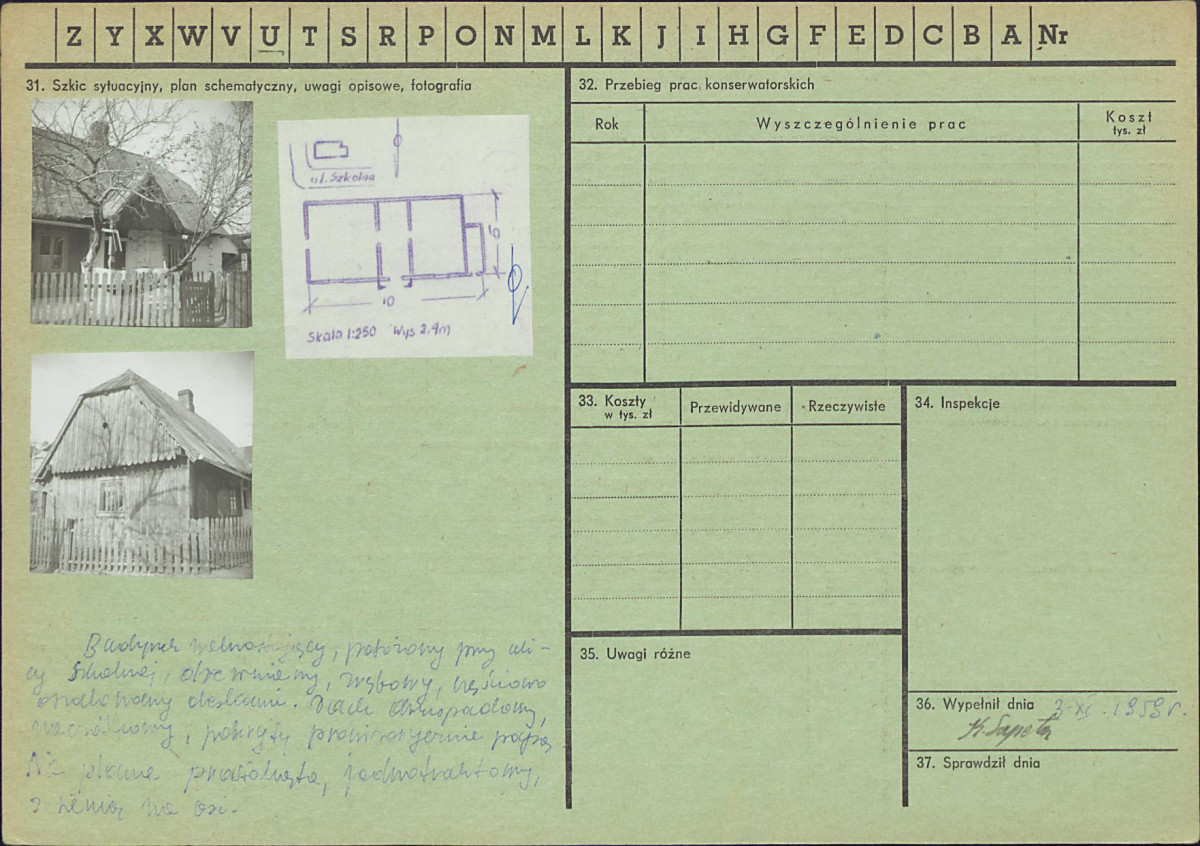 Z Y X W V U T S R P O N M L K J I H G F E D C B A Nr
31. Szkic sytuacyjny, plan schematyczny, uwagi opisowe, fotografia
ul. Szkolna
6
10
Skala 1:250 Wys 2,4m
Budynek wolnostojący, położony przy uli-
cy Szkolnej, drewniany, zrębowy, częściowo
oszalowany deskami. Dach dwuspadowy,
pokryty prowizorycznie papą
Na planie prostokąta, jednotraktowy,
z sienią na osi.
32. Przebieg prac konserwatorskich
Rok
Wyszczególnienie prac
Koszt
tys. zł
33. Koszty
w tys. zł
Przewidywane
Rzeczywiste
34. Inspekcje
35. Uwagi różne
36. Wypełnił dnia 3-XI.1959r.
K. Sapeta
37. Sprawdził dnia